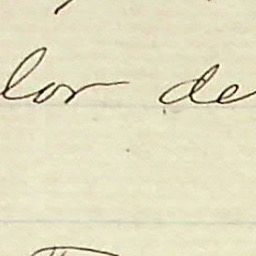 lor de